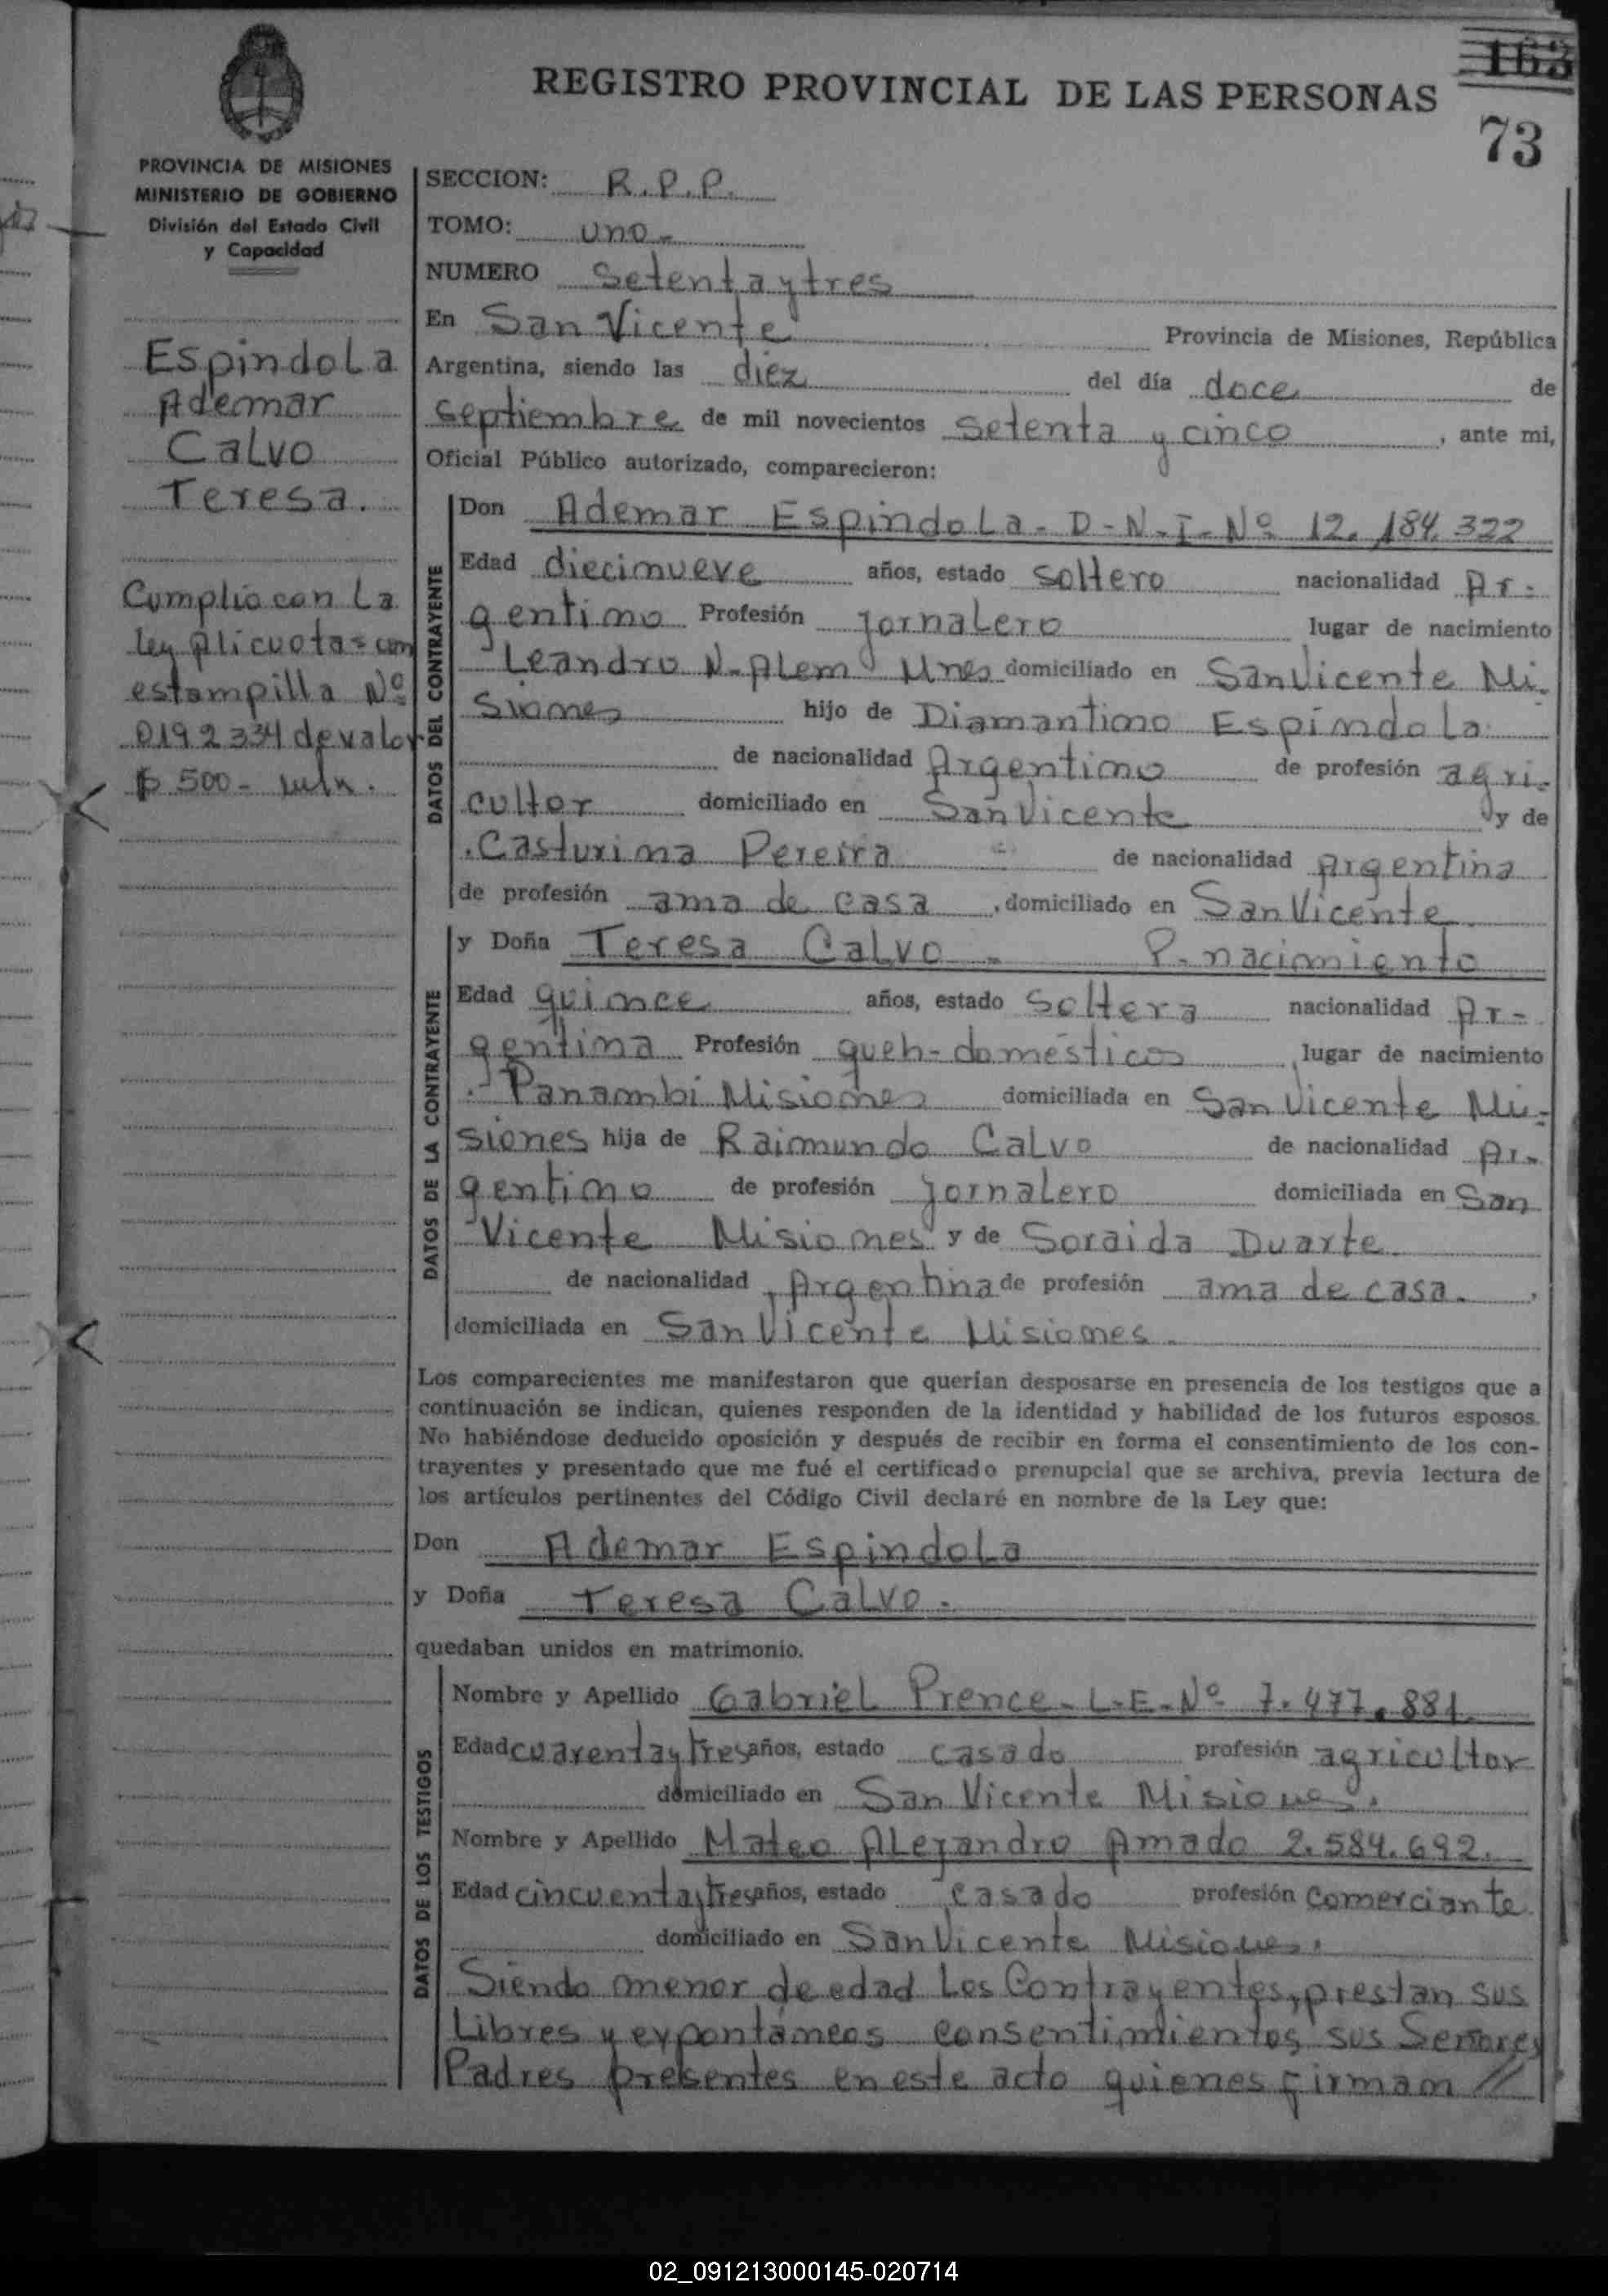 REGISTRO PROVINCIAL DE LAS PERSONAS
163
73
PROVINCIA DE MISIONES
MINISTERIO DE GOBIERNO
División del Estado Civil
y Capacidad
Espindola
Ademar
Calvo
Teresa.
Cumplio con La
Ley Alicuotas con
estampilla Nº
0192334 de valor
$ 500.- m/n.
SECCION: R.P.P.
TOMO: uno-
NUMERO Setenta y tres
En San Vicente Provincia de Misiones, República
Argentina, siendo las diez del día doce de
Septiembre de mil novecientos Setenta y cinco, ante mi,
Oficial Público autorizado, comparecieron:
DATOS DEL CONTRAYENTE
Don Ademar Espindola - D-N-I-Nº 12.184.322
Edad diecinueve años, estado Soltero nacionalidad Ar-
gentino Profesión jornalero lugar de nacimiento
Leandro N-Alem Mnes domiciliado en San Vicente Mi-
siones hijo de Diamantino Espindola
de nacionalidad Argentino de profesión agri-
cultor domiciliado en San Vicente y de
Casturina Pereira de nacionalidad Argentina
de profesión ama de casa, domiciliado en San Vicente
DATOS DE LA CONTRAYENTE
y Doña Teresa Calvo - P. nacimiento
Edad quince años, estado Soltera nacionalidad Ar-
gentina Profesión queh-domésticos lugar de nacimiento
Panambi Misiones domiciliada en San Vicente Mi-
siones hija de Raimundo Calvo de nacionalidad Ar-
gentino de profesión jornalero domiciliada en San
Vicente Misiones y de Soraida Duarte
de nacionalidad Argentina de profesión ama de casa.,
domiciliada en San Vicente Misiones.
Los comparecientes me manifestaron que querían desposarse en presencia de los testigos que a
continuación se indican, quienes responden de la identidad y habilidad de los futuros esposos.
No habiéndose deducido oposición y después de recibir en forma el consentimiento de los con-
trayentes y presentado que me fué el certificado prenupcial que se archiva, previa lectura de
los artículos pertinentes del Código Civil declaré en nombre de la Ley que:
Don Ademar Espindola
y Doña Teresa Calvo.
quedaban unidos en matrimonio.
DATOS DE LOS TESTIGOS
Nombre y Apellido Gabriel Prence - L-E-Nº 7.477.881
Edad cuarenta y tres años, estado casado profesión agricultor
domiciliado en San Vicente Misiones.
Nombre y Apellido Mateo Alejandro Amado 2.584.692.
Edad cincuenta y tres años, estado casado profesión comerciante
domiciliado en San Vicente Misiones.
Siendo menor de edad los Contrayentes, prestan sus
Libres y expontáneos consentimientos sus Señores
Padres presentes en este acto quienes firman //
02_091213000145-020714